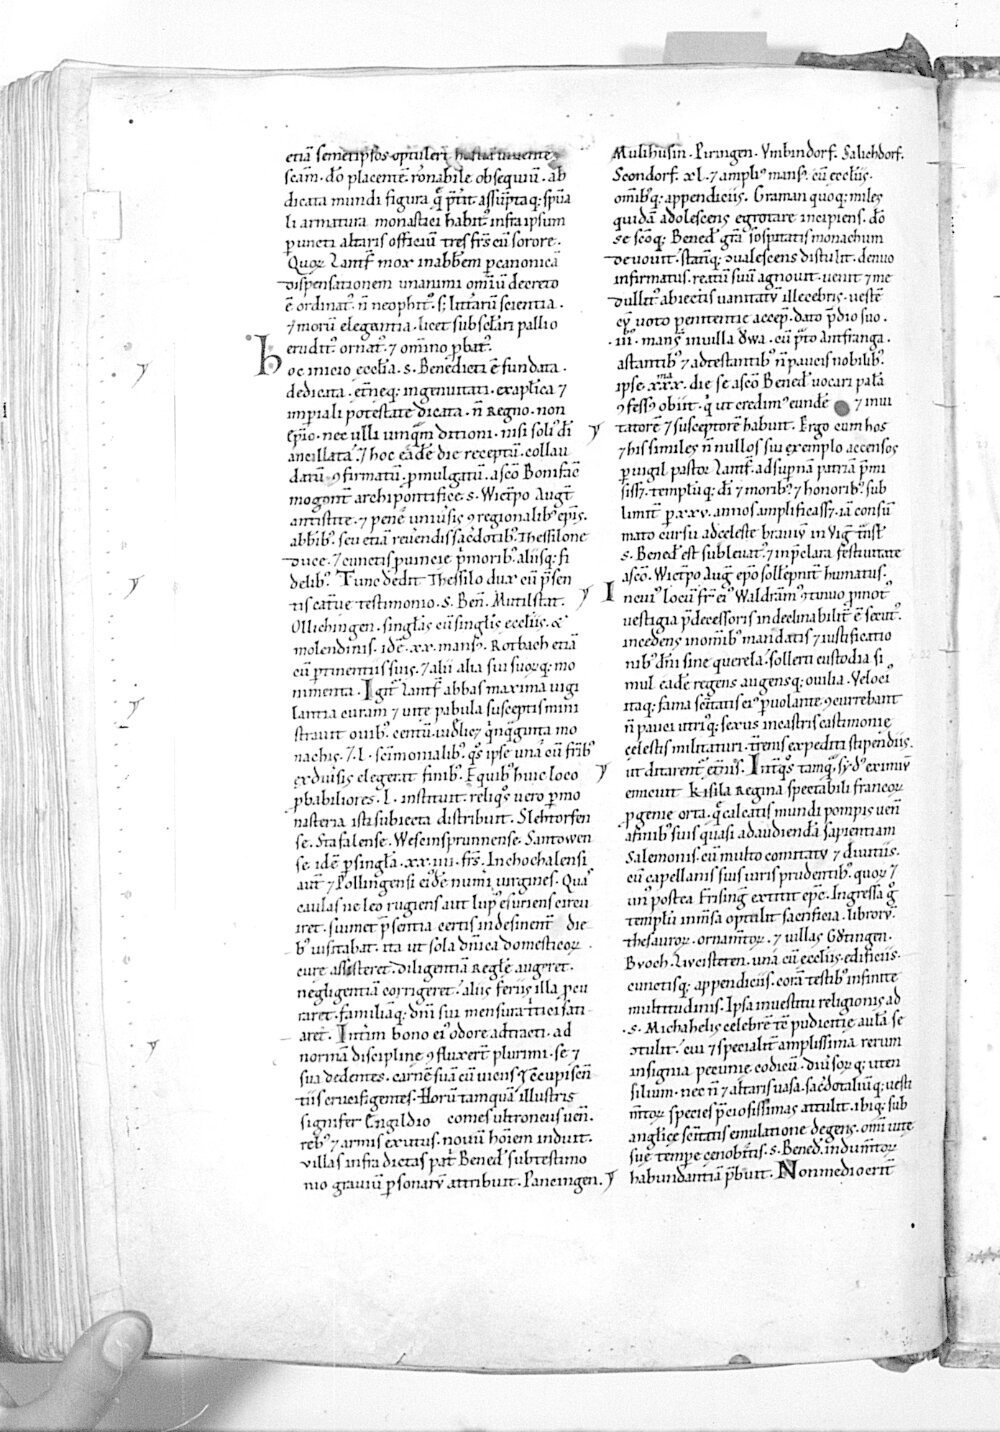 etiā semetipsos optuler̄ hostiā viuente
scam̄. dō placentē. rōnabile obsequiū. ab
dicata mundi figura q̄ p̄t̄it assūpta q; spūa
li armatura monastici habit᷒ infra ipsum
puncti altaris officiū tres fr̄s cū sorore.
Quoꝝ Lantf̄ mox in abbēm p canonicā
dispensationem unanimi omīū decreto
ē ordinat᷒. n̄ neophit᷒. s; litt̄arū scientia.
⁊ morū elegantia. licet sub sclari pallio
erudit᷒. ornat᷒. ⁊ omīno p̱bat᷒.
hoc inicio eccl̄ia. s. Benedicti ē fundata.
dedicata. et̄neq; ingenuitati. ex apl̄ica ⁊
imp̱iali potestate dicata. n̄ Regno. non
ep̄io. nec ulli umq̄m ditioni. nisi soli dī
ancillata. ⁊ hoc eadē die receptū. collau
datū. ꝯfirmatū. p̱mulgatū. a scō Bonifac̄
mogont̄ archipontifice. s. Wict̄po Augt̄
antistite. ⁊ pene uniūsis ꝯregionalib᷒ ep̄is.
abb̄ib᷒. seu etiā reūendiss̄ sac̄dotib᷒. Thessilone
duce. ⁊ cunctis p̱uincie p̄morib᷒. aliisq; fi
delib᷒. Tunc dedit Thessilo dux cū p̄sen
tis cat̄ue testimonio. s. Ben̄. Mutilstat.
Ollichingen. singl̄as cū singl̄is eccl̄iis. &
molendinis. idē. xx. mans᷒. Rotbach etiā
cū p̱tinentiis suis. ⁊ alii alia sui suoꝝq; mo
nimenta. Igit᷒ Lantf̄ abbas maxima uigi
lantia curam ⁊ uite pabula susceptis mini
strauit ouib᷒. centū. uidl̄ic& q̄nq̄ginta mo
nachis. ⁊. l. sc̄imonialib᷒. q̄s ipse unā cū fr̄ib᷒
ex diūsis elegerat finib᷒. E quib᷒ huic loco
p̱babiliores. l. instituit. reliq̄s uero p̱ mo
nisteria isti subiecta distribuit. Slehtorfen
se. Stafalense. Weseinsprunnense. Santowen
se. idē p̱ singl̄a. xx. iiii. fr̄s. In chochalensi
aut̄ ⁊ Pollingensi eīdē num̄i uirgines. Quas
caulas ne leo rugiens aut lup᷒ esuriens circu
iret. suimet p̄sentia certis indesinent̄ die
b᷒ uisitabat. ita ut sola dn̄ica domesticoꝝ
cure assisteret. diligentiā Regl̄e augeret.
negligentiā corrigeret. aliis feriis illa p̱cu
raret. familiāq; dn̄i sui mensura t̄tici sati
aret. Int̄im bono ei᷒ odore adtracti. ad
normā discipline ꝯfluxer̄t plurimi. se ⁊
sua dedentes. carnē suā cū uiciis ⁊ ꝯcupiscen̄
tiis crucifigentes. Horū tamquā illustris
signifer Engildio comes ultroneus ueni.
reb᷒ ⁊ armis exutus. nouū hōiem induit.
uillas infra dictas pat̄ Bened᷒ sub testimo
nio grauiū p̱sonarū attribuit. Pancingen.
Mulihusin. Piringen. Vmbindorf. Salichdorf.
Seondorf. xl. ⁊ ampli᷒ mans᷒. cū eccl̄iis.
omīb᷒q; appendiciis. Graman quoq; miles
quidā adolescens egrotare incipiens. dō
se scōq; Bened᷒ gr̄a sospitatis monachum
deuouit. statīq; ꝯualescens distulit. denuo
infirmatus. reatū suū agnouit. uenit ⁊ me
dullit᷒ abiectis uanitatū illecebris. uestē
cū uoto penitentie accep̱. dato p̄dio suo.
.iii. mans᷒ in uilla ōwa. cū p̄to Antfranga.
astantib᷒ ⁊ adtestantib᷒ n̄ paucis nobilib᷒.
ipse xxx.ma die se a scō Bened᷒ uocari palā
ꝯfess᷒ obiit. q̄ ut credim᷒ eundē ⁊ inui
tatorē ⁊ susceptorē habuit. Ergo cum hos
⁊ his similes n̄ nullos sui exemplo accensos
p̱uigil pastor Lantf̄. ad sup̱nā patriā p̄mi
siss&. templūq; dī ⁊ morib᷒ ⁊ honorib᷒ sub
limit̄ p̱. xxv. annos amplificass&. iā consum
mato cursu ad celeste brauiū in vig̱ t̄nsit᷒
s. Bened᷒ est subleuat᷒. ⁊ in p̄clara festiuitate
a scō. Wict̄po Aug̱ ep̄o sollēpnit̄ humatus.
In cui᷒ locū fr̄ ei᷒ Waldrām᷒ ꝯtinuo p̱mot᷒
uestigia p̄decessoris indeclinabilit̄ ē secut᷒.
incedens in omīb᷒ mandatis ⁊ iustificatio
nib᷒ dn̄i sine querela. sollerti custodia si
mul eadē regens augensq; ouilia. Veloci
itaq; fama sc̄itatis ei᷒ p̱uolante. ꝯcurrebant
n̄ pauci utri᷒q; sexus in castris castimonie
celestis militaturi. t̄renis expediti stipendiis.
ut ditarent᷒ et̄nis. Int̄ q̄s tamq̄ sȳd᷒ eximiū
enicuit Kisila Regina spectabili francoꝝ
p̱genie orta. q̄ calcatis mundi pompis ueni
a finib᷒ suis quasi ad audiendā sapientiam
Salemonis. cū multo comitatu ⁊ diuitiis.
cū capellanis sui iuris prudentib᷒. quoꝝ ⁊
un᷒ postea Frising᷒ extitit ep̄c. Ingressa g̊
templū inm̄sa optulit sacrificia. libroꝝ.
thesauroꝝ. ornam̄toꝝ. ⁊ uillas Gōtingen.
Bvoch. Liveisteten. unā cū eccl̄iis. edificiis.
cunctisq; appendiciis. corā testib᷒ infinite
multitudinis. Ipsa in uestitu religionis ad
.s. Michahelis celebrē tē pudicitie aulā se
ꝯtulit. cui ⁊ specialit̄ amplissima rerum
insignia pecunie codicū. diūsoꝝ q; uten
silium. nec n̄ ⁊ altaris uasa. sac̄dotaliūq; uesti
m̄toꝝ species p̄ciosissimas attulit. ibiq; sub
anglice sc̄itatis emulatione degens. om̄i uite
sue tempe cenobitis. s. Bened᷒. indum̄toꝝ
habundantiā p̄buit. Non mediocrit̄